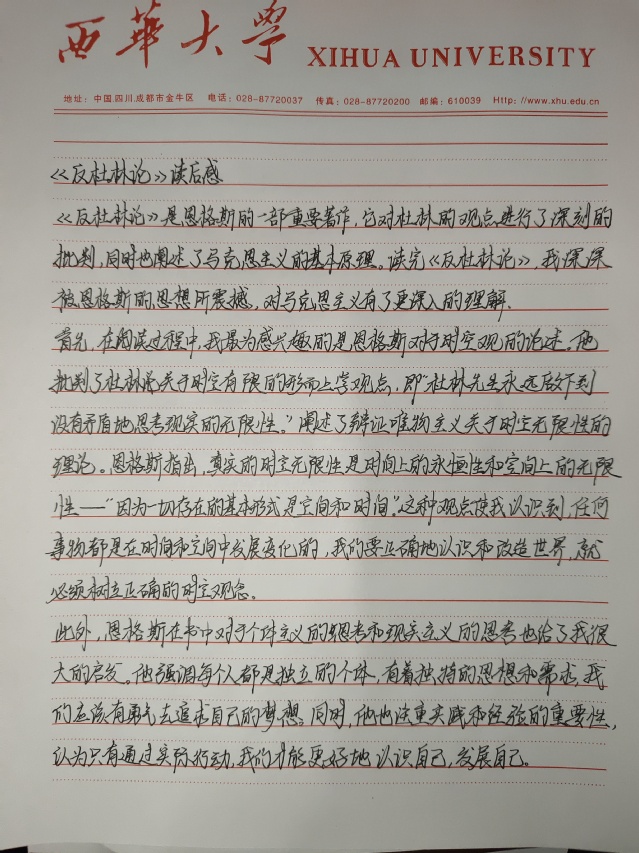 西華大學 XIHUA UNIVERSITY
地址：中国.四川.成都市金牛区 电话：028-87720037 传真：028-87720200 邮编：610039 Http：//www.xhu.edu.cn
《反杜林论》读后感
《反杜林论》是恩格斯的一部重要著作，它对杜林的观点进行了深刻的
批判，同时也阐述了马克思主义的基本原理。读完《反杜林论》，我深深
被恩格斯的思想所震撼，对马克思主义有了更深入的理解.
首先，在阅读过程中，我最为感兴趣的是恩格斯对于时空观的论述。他
批判了杜林论关于时空有限的形而上学观点，即“杜林先生永远做不到
没有矛盾地思考现实的无限性。”阐述了辩证唯物主义关于时空无限性的
理论。恩格斯指出，真实的时空无限性是时间上的永恒性和空间上的无限
性——“因为一切存在的基本形式是空间和时间”.这种观点使我认识到，任何
事物都是在时间和空间中发展变化的，我们要正确地认识和改造世界，就
必须树立正确的时空观念。
此外，恩格斯在书中对于个体主义的思考和现实主义的思考也给了我很
大的启发。他强调每个人都是独立的个体，有着独特的思想和需求，我
们应该有勇气去追求自己的梦想。同时，他也注重实践和经验的重要性，
认为只有通过实际行动，我们才能更好地认识自己，发展自己。